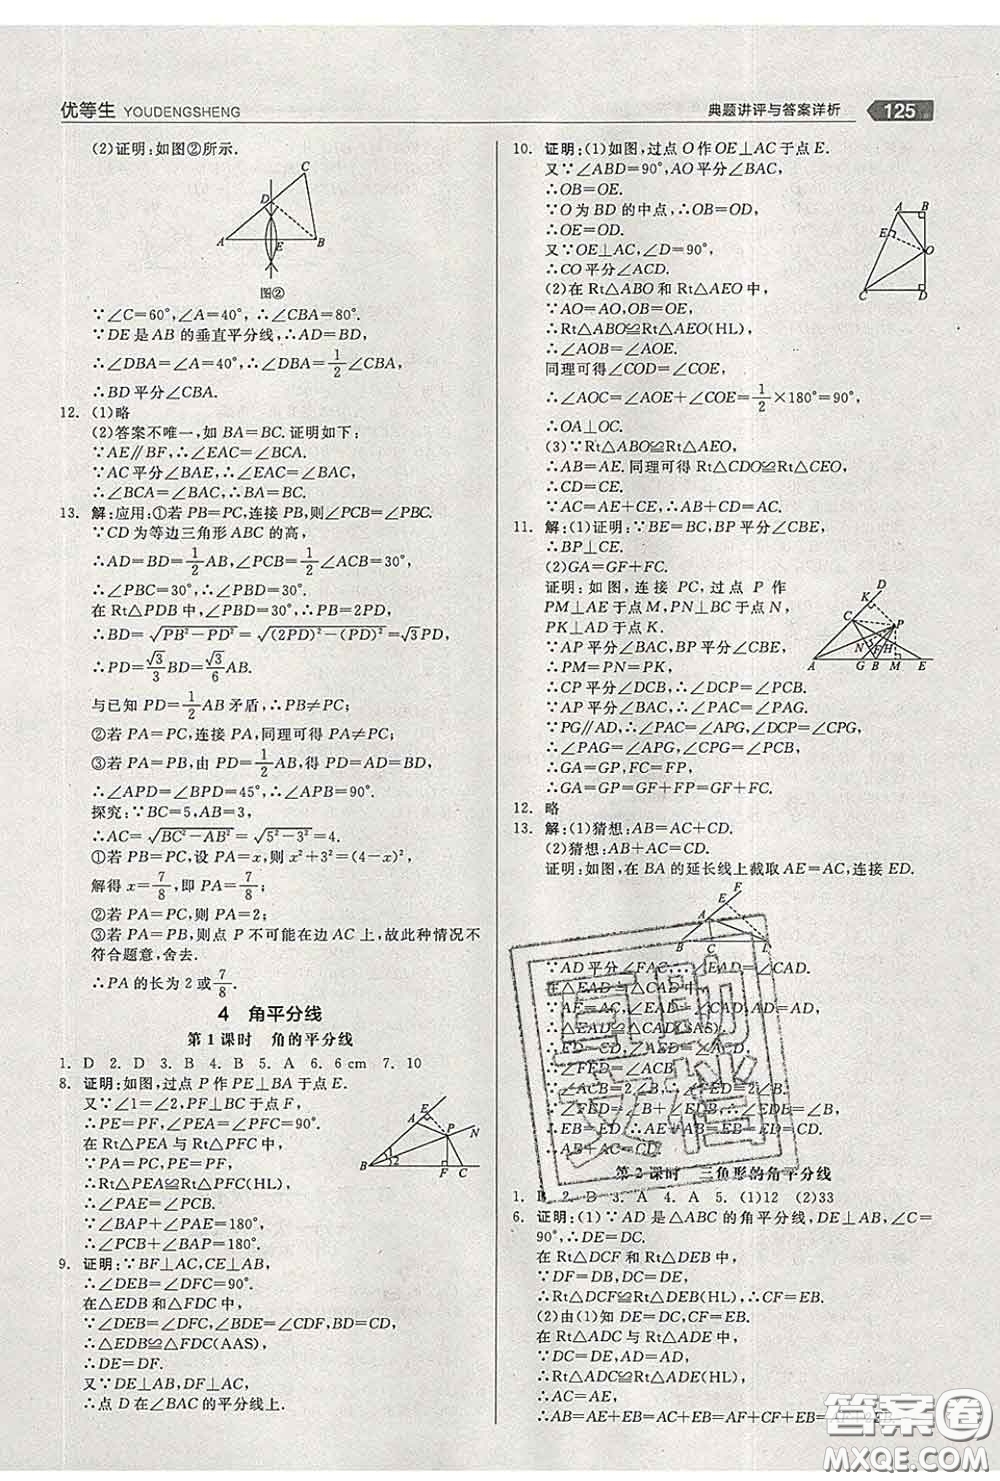 优等生 YOUDENGSHENG
典题讲评与答案详析 125
(2)证明:如图②所示.
C
D
A
E
B
图②
∵∠C=60°,∠A=40°,∴∠CBA=80°.
∵DE是AB的垂直平分线,∴AD=BD,
∴∠DBA=∠A=40°,∴∠DBA=1/2∠CBA,
∴BD平分∠CBA.
12. (1)略
(2)答案不唯一,如BA=BC.证明如下:
∵AE∥BF,∴∠EAC=∠BCA.
∵AC平分∠BAE,∴∠EAC=∠BAC,
∴∠BCA=∠BAC,∴BA=BC.
13. 解:应用:①若PB=PC,连接PB,则∠PCB=∠PBC.
∵CD为等边三角形ABC的高,
∴AD=BD=1/2AB,∠PCB=1/2∠ACB=30°,
∴∠PBC=30°,∴∠PBD=30°.
在Rt△PDB中,∠PBD=30°,∴PB=2PD,
∴BD=√(PB²-PD²)=√((2PD)²-(PD)²)=√3PD,
∴PD=√3/3BD=√3/6AB.
与已知PD=1/2AB矛盾,∴PB≠PC;
②若PA=PC,连接PA,同理可得PA≠PC;
③若PA=PB,由PD=1/2AB,得PD=AD=BD,
∴∠APD=∠BPD=45°,∴∠APB=90°.
探究:∵BC=5,AB=3,
∴AC=√(BC²-AB²)=√(5²-3²)=4.
①若PB=PC,设PA=x,则x²+3²=(4-x)²,
解得x=7/8,即PA=7/8;
②若PA=PC,则PA=2;
③若PA=PB,则点P不可能在边AC上,故此种情况不
符合题意,舍去.
∴PA的长为2或7/8.
4 角平分线
第1课时 角的平分线
1. D 2. D 3. B 4. B 5. A 6. 6cm 7. 10
8. 证明:如图,过点P作PE⊥BA于点E.
又∵∠1=∠2,PF⊥BC于点F,
∴PE=PF,∠PEA=∠PFC=90°.
在Rt△PEA与Rt△PFC中,
∵PA=PC,PE=PF,
∴Rt△PEA≌Rt△PFC(HL),
∴∠PAE=∠PCB.
∵∠BAP+∠PAE=180°,
∴∠PCB+∠BAP=180°.
9. 证明:∵BF⊥AC,CE⊥AB,
∴∠DEB=∠DFC=90°.
在△EDB和△FDC中,
∵∠DEB=∠DFC,∠BDE=∠CDF,BD=CD,
∴△EDB≌△FDC(AAS),
∴DE=DF.
又∵DE⊥AB,DF⊥AC,
∴点D在∠BAC的平分线上.
10. 证明:(1)如图,过点O作OE⊥AC于点E.
又∵∠ABD=90°,AO平分∠BAC,
∴OB=OE.
∵O为BD的中点,∴OB=OD,
∴OE=OD.
又∵OE⊥AC,∠D=90°,
∴CO平分∠ACD.
(2)在Rt△ABO和Rt△AEO中,
∵AO=AO,OB=OE,
∴Rt△ABO≌Rt△AEO(HL),
∴∠AOB=∠AOE.
同理可得∠COD=∠COE,
∴∠AOC=∠AOE+∠COE=1/2×180°=90°,
∴OA⊥OC.
(3)∵Rt△ABO≌Rt△AEO,
∴AB=AE.同理可得Rt△CDO≌Rt△CEO,
∴CD=CE.
∵AC=AE+CE,∴AB+CD=AC.
11. 解:(1)证明:∵BE=BC,BP平分∠CBE,
∴BP⊥CE.
(2)GA=GF+FC.
证明:如图,连接PC,过点P作
PM⊥AE于点M,PN⊥BC于点N,
PK⊥AD于点K.
∵AP平分∠BAC,BP平分∠CBE,
∴PM=PN=PK,
∴CP平分∠DCB,∴∠DCP=∠PCB.
∵AP平分∠BAC,∴∠PAC=∠PAG.
∵PG∥AD,∴∠PAC=∠APG,∠DCP=∠CPG,
∴∠PAG=∠APG,∠CPG=∠PCB,
∴GA=GP,FC=FP,
∴GA=GP=GF+FP=GF+FC.
12. 略
13. 解:(1)猜想:AB=AC+CD.
(2)猜想:AB+AC=CD.
证明:如图,在BA的延长线上截取AE=AC,连接ED.
∵AD平分∠FAC,∴∠EAD=∠CAD.
在△EAD与△CAD中,
∵AE=AC,∠EAD=∠CAD,AD=AD,
∴△EAD≌△CAD(SAS),
∴ED=CD,∠AED=∠ACD,
∴∠FED=∠ACB.
∵∠ACB=2∠B,∴∠FED=2∠B.
∵∠FED=∠B+∠EDB,∴∠EDB=∠B,
∴EB=ED,∴AB+AE=EB=ED=CD,
∴AB+AC=CD.
第2课时 三角形的角平分线
1. B 2. D 3. A 4. A 5. (1)12 (2)33
6. 证明:(1)∵AD是△ABC的角平分线,DE⊥AB,∠C=
90°,∴DC=DE.
在Rt△DCF和Rt△DEB中,
∵DF=DB,DC=DE,
∴Rt△DCF≌Rt△DEB(HL),∴CF=EB.
(2)由(1)知DC=DE,CF=EB.
在Rt△ADC与Rt△ADE中,
∵AD=AD,DC=DE,
∴Rt△ADC≌Rt△ADE(HL),
∴AC=AE,
∴AB=AE+EB=AC+EB=AF+CF+EB=
答案圈
MXQE.COM